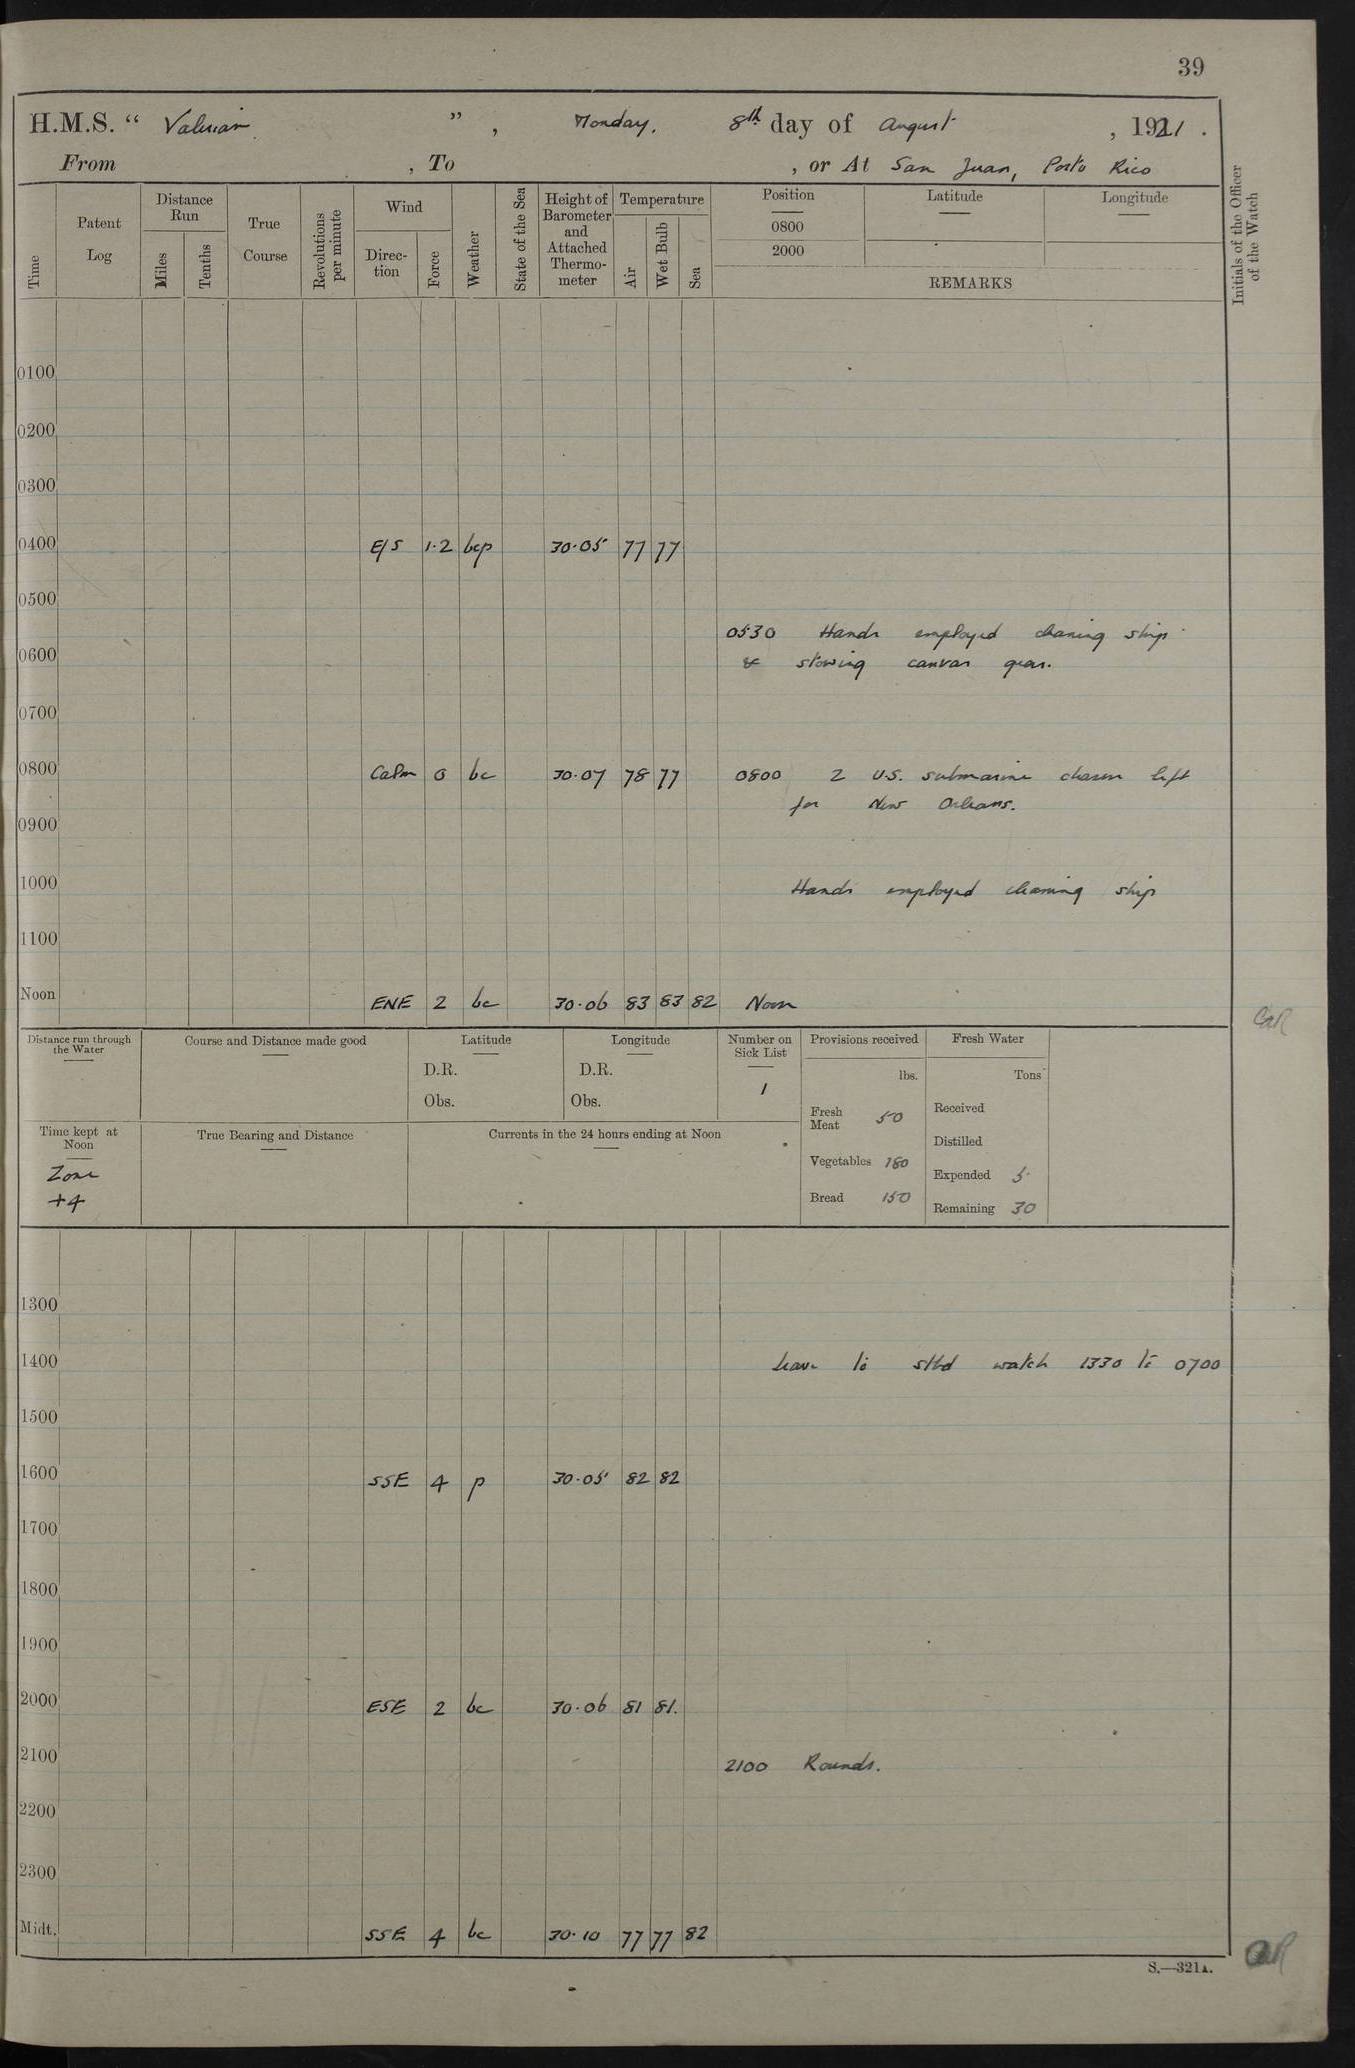 39
H.M.S. “ Valerian ” , Monday. 8th day of August , 1921 .
From , To , or At San Juan, Porto Rico
Time
Patent Log
Distance Run
Miles
Tenths
True Course
Revolutions per minute
Wind
Direction
Force
Weather
State of the Sea
Height of Barometer and Attached Thermometer
Temperature
Air
Wet Bulb
Sea
Position
Latitude
Longitude
0800
2000
REMARKS
Initials of the Officer of the Watch
0100
0200
0300
0400 E/S 1·2 bcp 30·05 77 77
0500
0530 Hands employed cleaning ship
0600 & stowing canvas gear.
0700
0800 Calm 0 bc 30·07 78 77 0800 2 U.S. submarine chasers left
for New Orleans.
0900
1000 Hands employed cleaning ship
1100
Noon ENE 2 bc 30·06 83 83 82 Noon
CAR
Distance run through the Water
Course and Distance made good
Latitude
D.R.
Obs.
Longitude
D.R.
Obs.
Number on Sick List
1
Provisions received
lbs.
Fresh Meat 50
Vegetables 180
Bread 150
Fresh Water
Tons
Received
Distilled
Expended 5
Remaining 30
Time kept at Noon
Zone
+4
True Bearing and Distance
Currents in the 24 hours ending at Noon
1300
1400 Leave to stbd watch 1330 to 0700
1500
1600 SSE 4 p 30·05 82 82
1700
1800
1900
2000 ESE 2 bc 30·06 81 81.
2100 2100 Rounds.
2200
2300
Midt. SSE 4 bc 30·10 77 77 82
CAR
S.—321A.